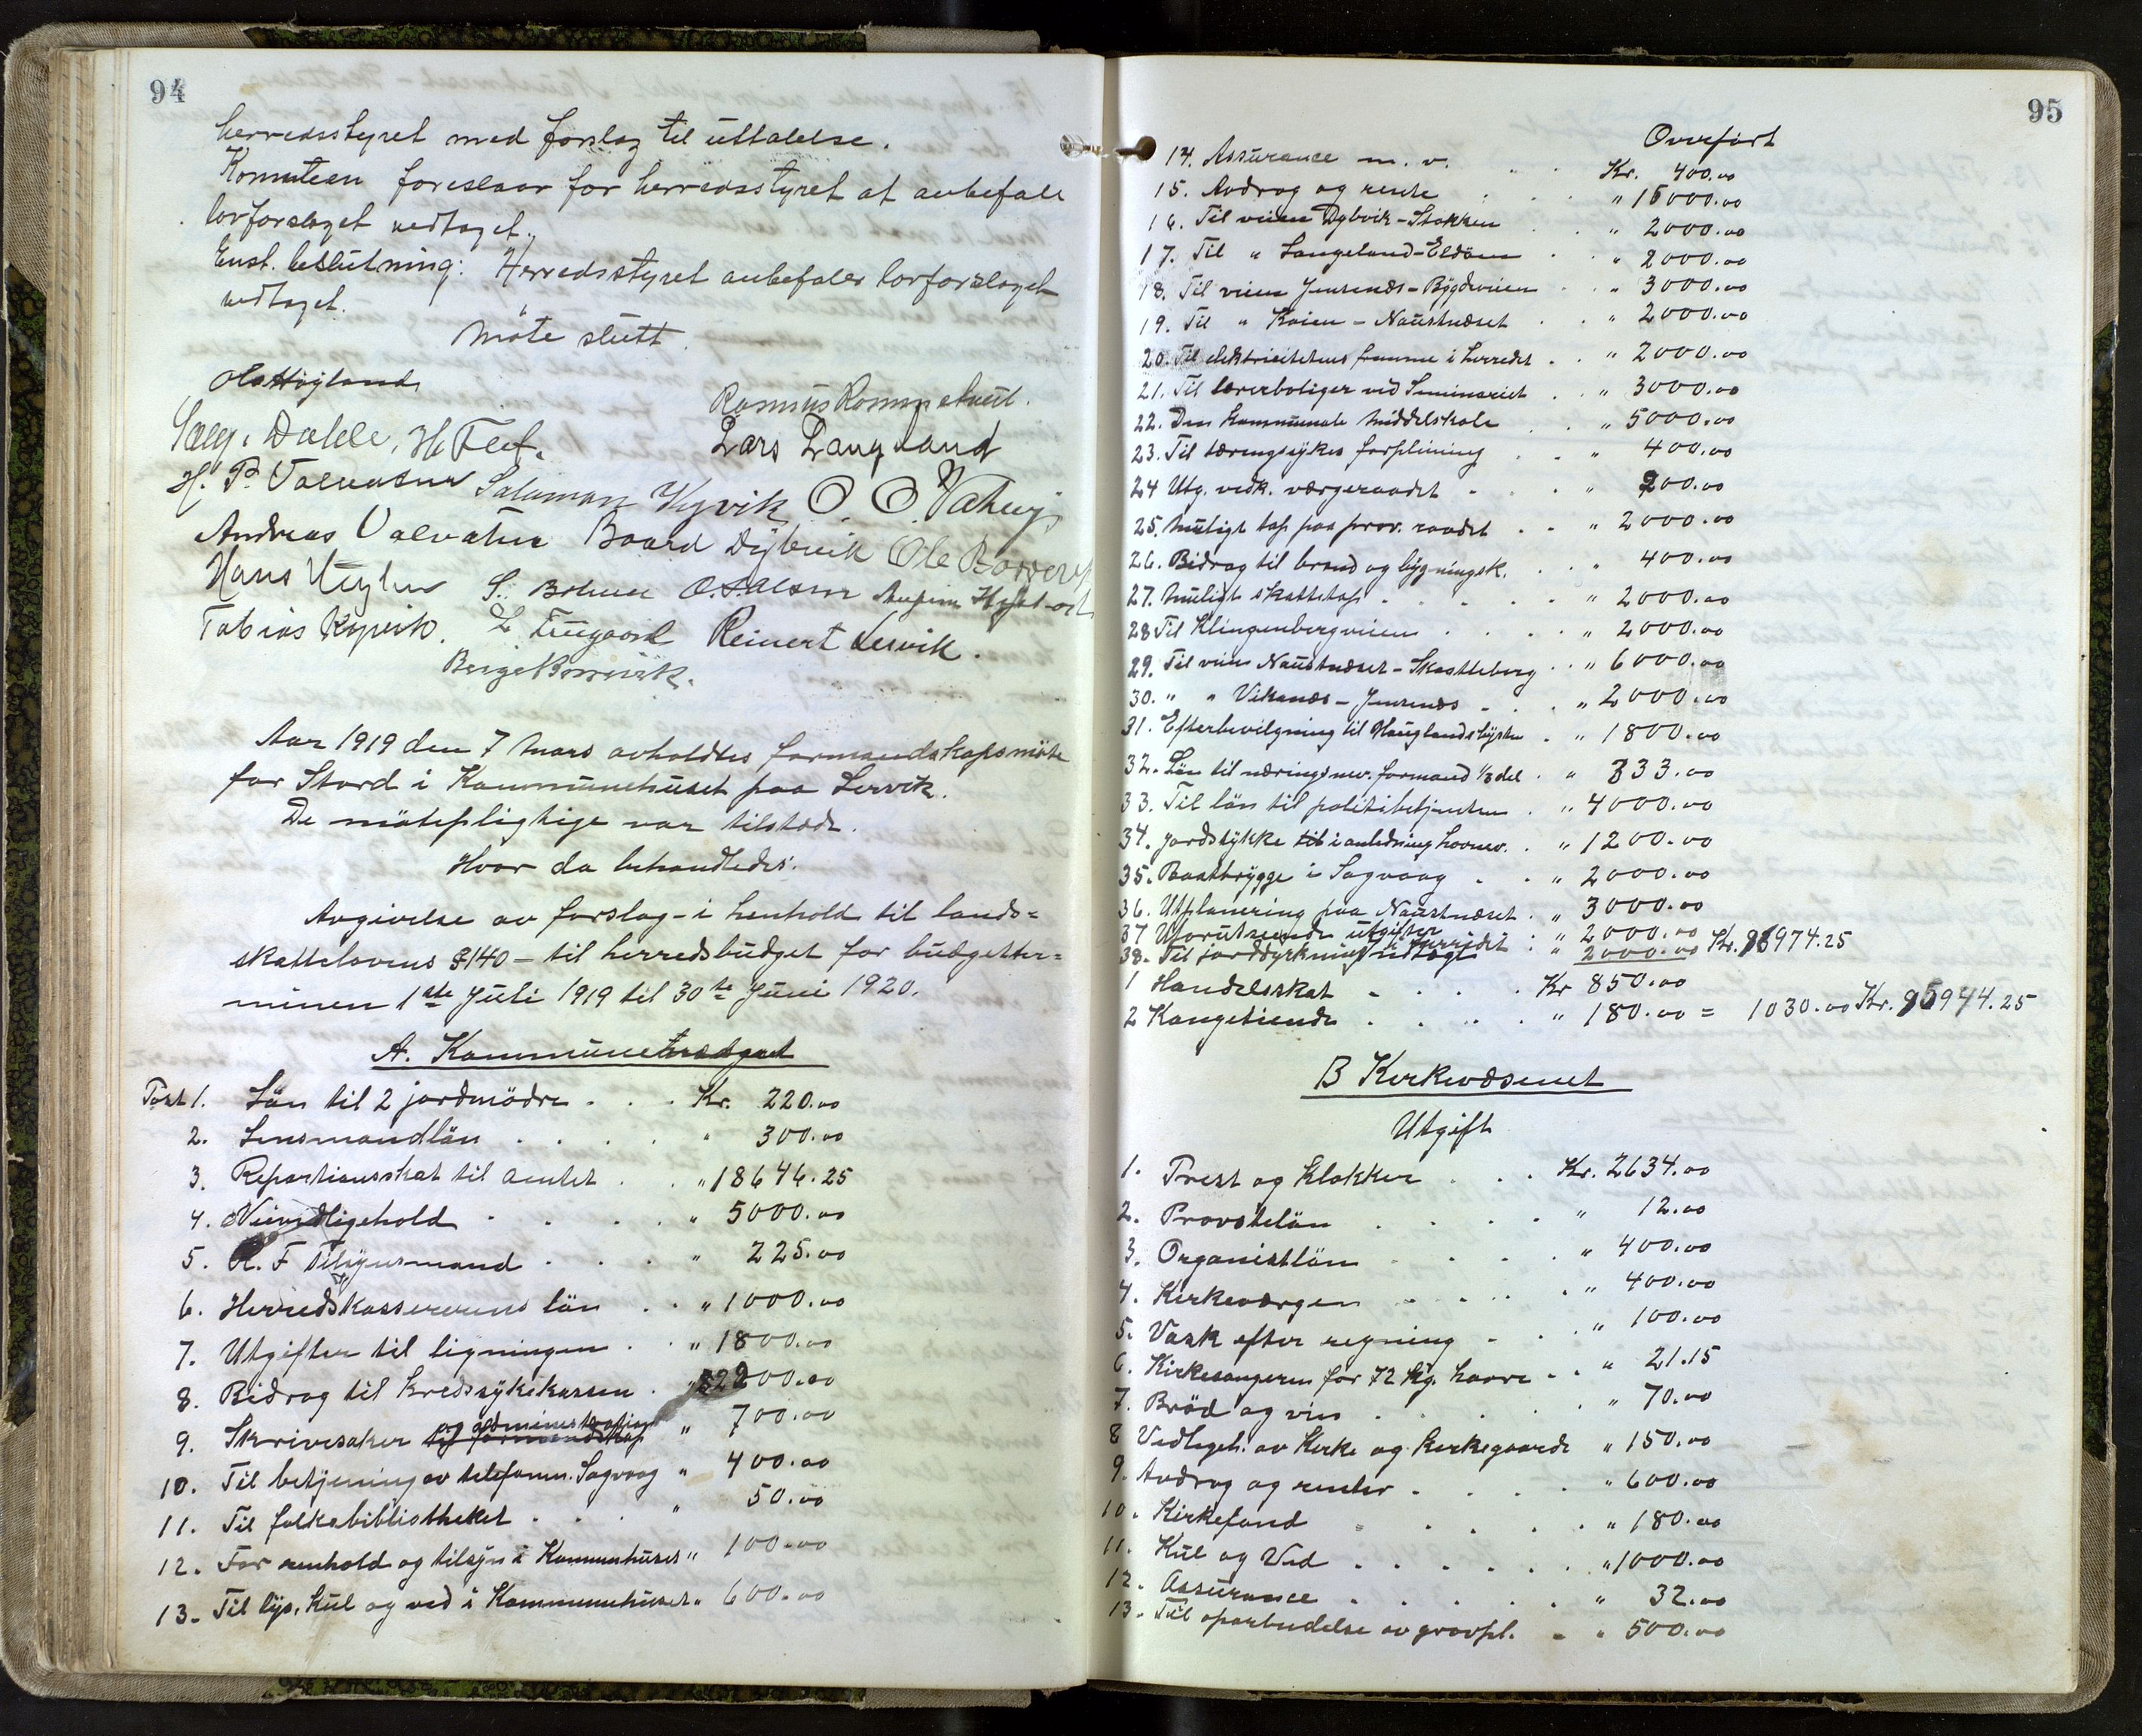 94
herredsstyret med forslag til uttalelse.
Komiteen foreslaar for herredsstyret at anbefale
lovforslaget vedtaget.
Enst. beslutning: Herredsstyret anbefaler lovforslaget
vedtaget.
Möte slutt.
Ola Höyland
Rasmus Rommetveit.
Dahle, H. Flet.
Lars Langeland
H. P. Valvatne Salamon Kyvik O. O.
Andreas Valvatne Baard Dybvik Ole
Hans S. O.
Tobias Kyvik. L Reinert Lervik.
Børge Børrevik.
Aar 1919 den 7 mars avholdtes formandskapsmöte
for Stord i Kommunehuset paa Lervik.
De mötepligtige var tilstede.
Hvor da behandledes:
Avgivelse av forslag - i henhold til lands-
skattelovens § 140 - til herredsbudget for budgetter-
minen 1ste Juli 1919 til 30te Juni 1920.
A. Kommune
Post 1. Lön til 2 jordmödre . . . Kr. 220.00
2. Lensmandlön . . . . " 300.00
3. Repartionsskat til amtet . . " 18646.25
4. Veivedligehold . . . . " 5000.00
5. R. F tilsynsmand . . . " 225.00
6. Herredskassererens lön . . " 1000.00
7. Utgifter til ligningen . . " 1800.00
8. Bidrag til kredssykekassen . " 2200.00
og administration
9. Skrivesaker til formandskap " 700.00
10. Til betjening av telefonen. Sagvaag " 400.00
11. Til folkebibliotheket . . . " 50.00
12. For renhold og tilsyn i Kommunhuset " 100.00
13. Til lys, kul og ved i Kommunehuset " 600.00
95
Overfört
14. Assurance m. v. . . Kr. 400.00
15. Avdrag og rente . . . " 16000.00
16. Til veien Dybvik - Stokken . . " 2000.00
17. Til " Langeland - Eldöen . . " 2000.00
18. Til veien Jensenæs - Bygdeveien . . " 3000.00
19. Til " Kaien - Naustnæset . . " 2000.00
20. Til elektricitetens fremme i herredet . . " 2000.00
21. Til lærerboliger ved Seminariet . . " 3000.00
22. Den kommunale middelskole . . " 5000.00
23. Til tæringsykes forpleining . . " 400.00
24 Utg. vedk. værgeraadet . . . " 200.00
25. Muligt tap paa prov. raadet . . " 2000.00
26. Bidrag til brand og bygningsk. . . " 400.00
27. Muligt skattetap . . . . . " 2000.00
28 Til Klingenbergveien . . . . " 2000.00
29. Til veien Naustnæset - Skattleberg . . " 6000.00
30. " " Vikanæs - Jensenæs . . . " 2000.00
31. Efterbevilgning til . " 1800.00
32. Lön til næringsnev. formand 1/3 del . " 333.00
33. Til lön til politibetjenten . " 4000.00
34. Jordstykke til i anledning havnev. . " 1200.00
35. Baatbrygge i Sagvaag . . " 2000.00
36. Utplanering paa Naustnæset . " 3000.00
37 Uforutseende utgifter . " 2000.00
38. Til jorddyrkning i herredet . " 2000.00 Kr. 96974.25
1 Handelsskat . . . . . Kr 850.00
2 Kongetiende . . . . . " 180.00 = 1030.00 Kr. 95944.25
B Kirkevæsenet
Utgift
1. Prest og klokker . . . Kr. 2634.00
2. Provstelön . . . . " 12.00
3. Organistlön . . . . " 400.00
4. Kirkeværgen . . . . . " 400.00
5. Vask efter regning . . . " 100.00
6. Kirkesangeren for 72 kg. havre . . " 21.15
7. Bröd og vin . . . . . " 70.00
8 Vedligeh. av kirke og kirkegaarde " 150.00
9. Avdrag og renter . . . . " 600.00
10. Kirkefond . . . . . " 180.00
11. Kul og Ved . . . . . . " 1000.00
12. Assurance . . . . . " 32.00
13. Til oparbeidelse av gravpl. . . " 500.00